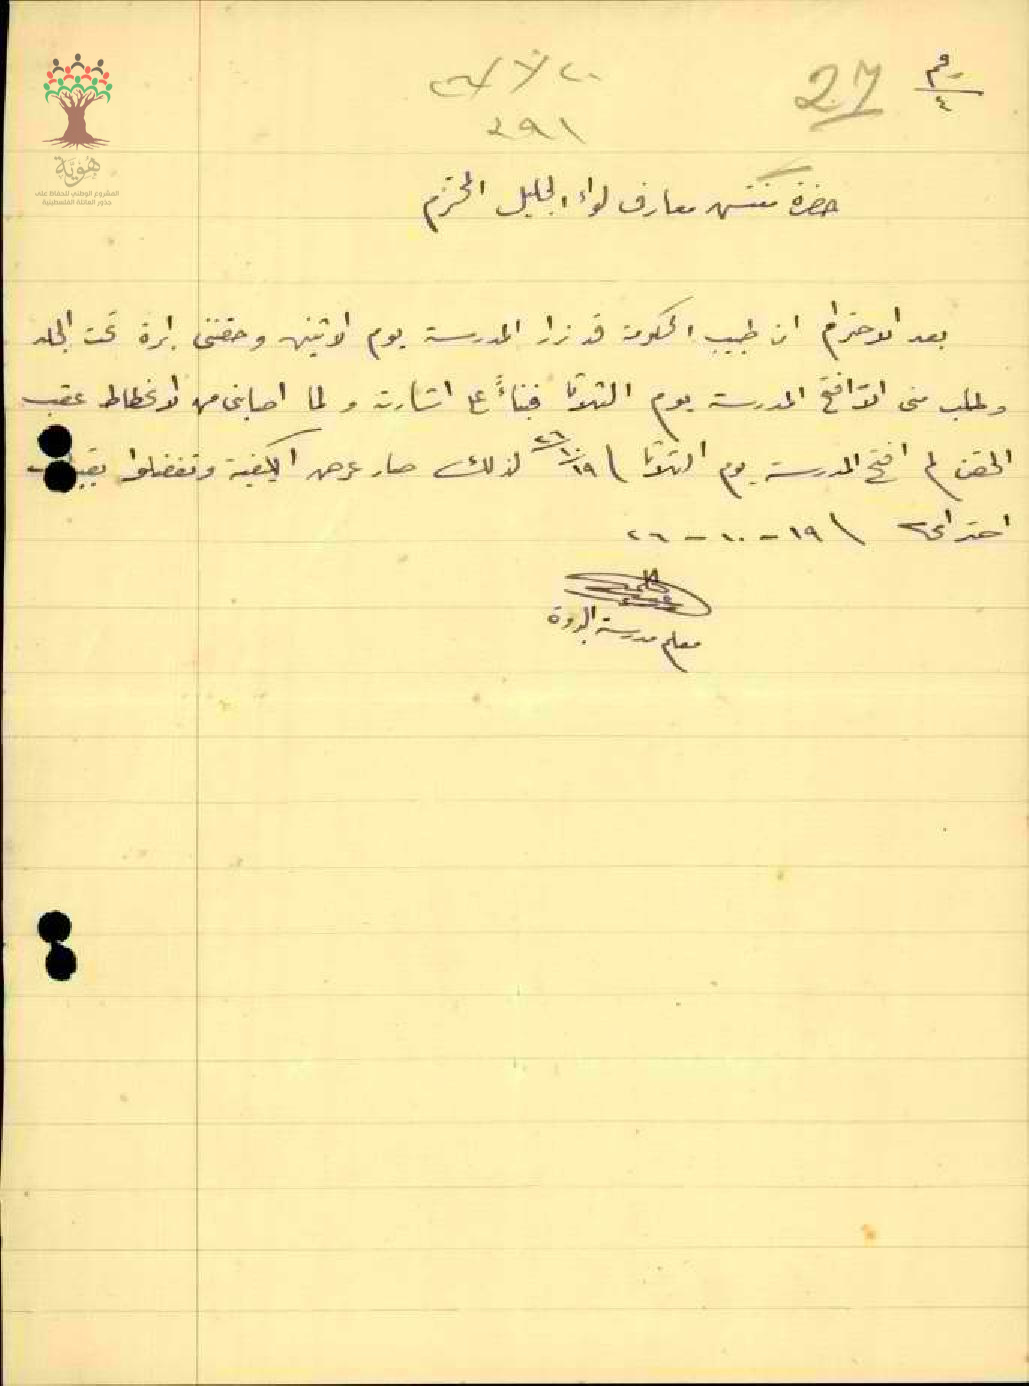 رقم
٤
27
٢٠
٢٩١
هُويَّة
المشروع الوطني للحفاظ على
جذور العائلة الفلسطينية
حضرة مفتش معارف لواء الجليل المحترم
بعد الاحترام ان طبيب الحكومة قد زار المدرسة يوم الاثنين وحقنني ابرة تحت الجلد
وطلب مني الا افتح المدرسة يوم الثلاثا فبناءً على اشارته و لما اصابني من الانحطاط عقب
الحقن لم افتح المدرسة يوم الثلاثا \ ١٩/١٠/٢٦ لذلك صار عرض الكيفية وتفضلوا بقبول
احترامي \ ١٩-١٠-٢٦
معلم مدرسة